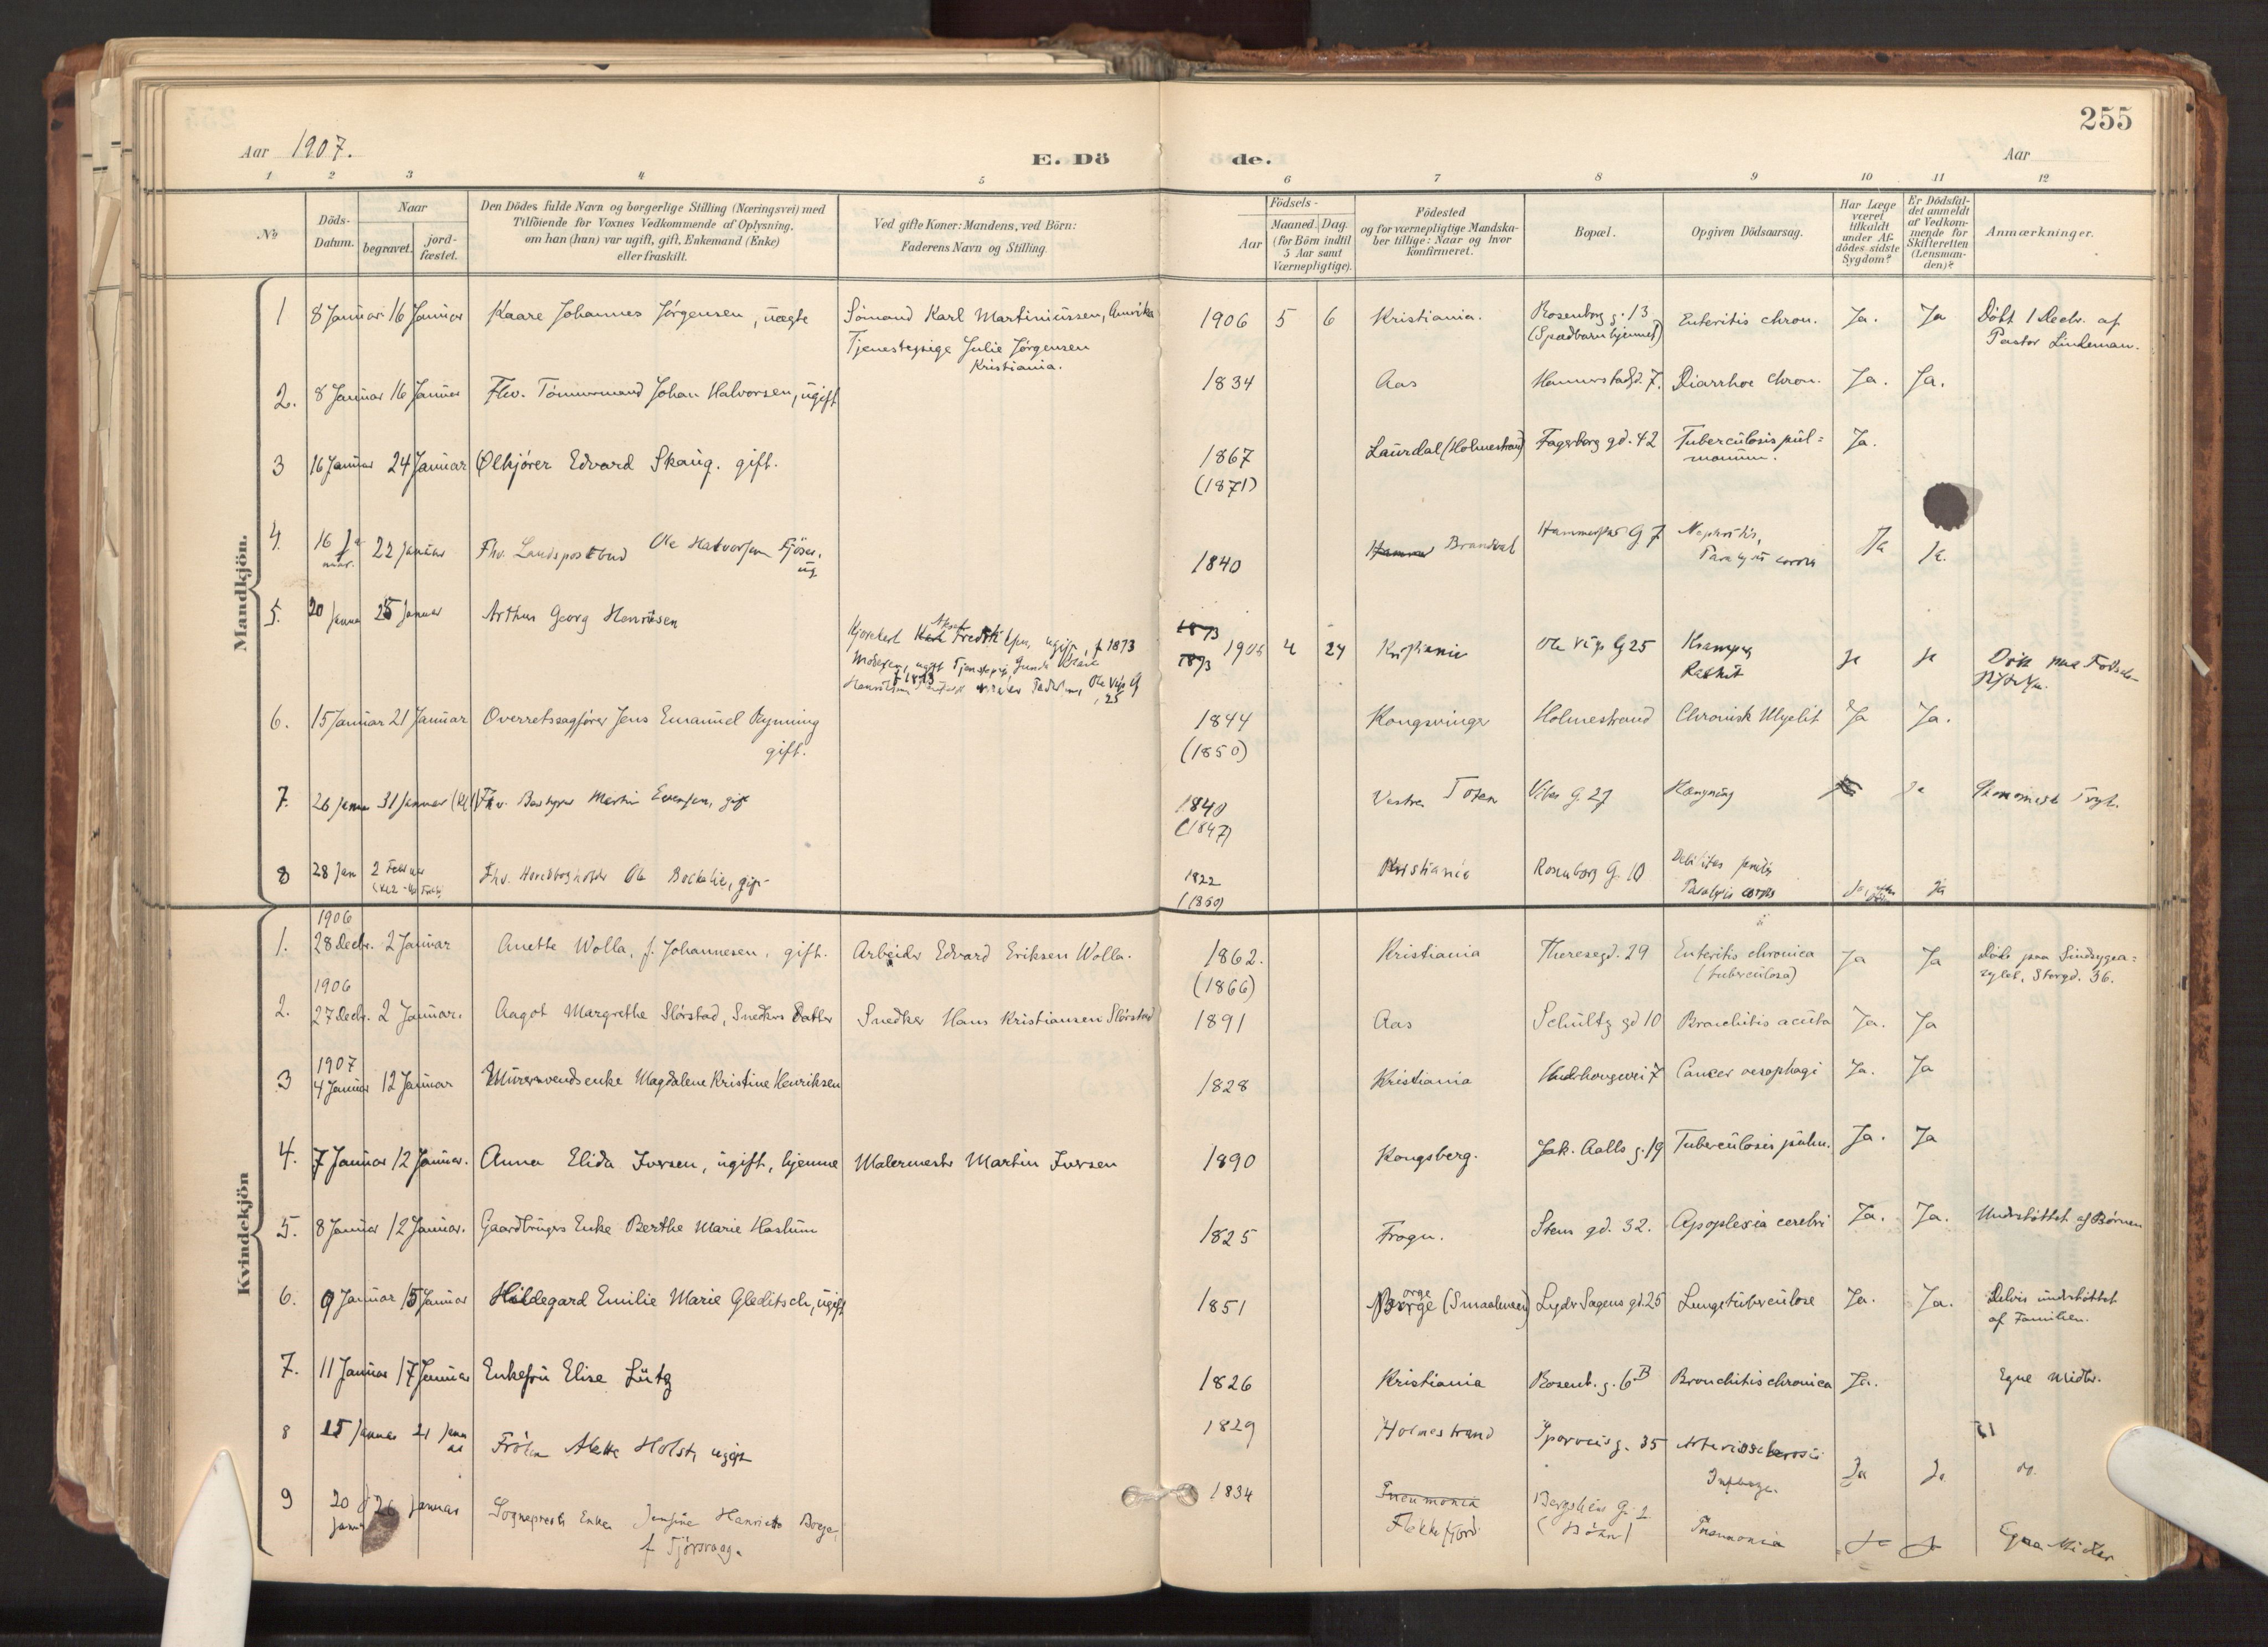 255
Aar 1907.
E. Dö
de.
Aar
1 2 3 4 5 6 7 8 9 10 11 12
No
Döds-
Datum.
Naar
begravet.
jord-
fæstet.
Den Dödes fulde Navn og borgerlige Stilling (Næringsvei) med
Tilföiende for Voxnes Vedkommende af Oplysning,
om han (hun) var ugift, gift, Enkemand (Enke)
eller fraskilt.
Ved gifte Koner: Mandens, ved Börn:
Faderens Navn og Stilling.
Födsels-
Aar
Maaned. Dag.
(for Börn indtil
5 Aar samt
Værnepligtige).
Födested
og for værnepligtige Mandska-
ber tillige: Naar og hvor
konfirmeret.
Bopæl.
Opgiven Dödsaarsag.
Har Læge
været
tilkaldt
under Af-
dödes sidste
Sygdom?
Er Dödsfal-
det anmeldt
af Vedkom-
mende for
Skifteretten
(Lensman-
den)?
Anmærkninger.
Mandkjön.
1 8 Januar 16 Januar Kaare Johannes Jørgensen, uægte Sømand Karl Martiniussen, Amerika 1906 5 6 Kristiania. Rosenborg g. 13 Enteritis chron. Ja. Ja Døbt 1 Decbr. af
Tjenestepige Julie Jørgensen (Spædbarnhjemmet) Pastor Lindeman.
Kristiania.
2. 8 Januar 16 Januar Fhv. Tømmermand Johan Halvorsen, ugift 1834 Aas Hammerstadgd. 7. Diarrhoe chron. Ja. Ja.
3 16 Januar 24 Januar Ølkjører Edvard Skaug. gift. 1867 Laurdal (Holmestrand) Fagerborg gd. 42 Tuberculosis pul=
(1871) monum. Ja.
4. 16 Ja 22 Januar Fhv. Landspostbud Ole Halvorsen Fjøser, 1840 Brandval G 7 Nephritis, Ja Ja.
nuar. ug. Paralysis cordis
5. 20 Januar 25 Januar Arthur Georg Henriksen
1873
1873 1906 4 24 Kristiania Ole Vigs G 25 Krampe Ja Ja
Rachit
25
6. 15 Januar 21 Januar Overretssagfører Jens Emanuel Rynning 1844 Kongsvinger Holmestrand Chronisk Myelit Ja Ja.
gift. (1850)
7. 26 Januar 31 Januar Fhv. Martin Evensen, gift 1840 Vestre Toten Vibes G. 27 Hængning Ja
(1847)
8 28 Jan 2 Februar Fhv. Ole Bækkelie, gift 1822 Kristiania Rosenborg G. 10 Debilitas senilis
(1850) Paralysis cordis Ja, Ja
Kvindekjön
1906
1. 28 Decbr. 2 Januar Anette Wolla, f. Johannesen, gift. Arbeider Edvard Eriksen Wolla. 1862. Kristiania Theresegd. 29 Enteritis chronica Ja Ja Døde paa Sindsygea=
(1866) (tuberculosa) sylet, Storgd. 36.
1906
2. 27 Decbr. 2 Januar. Aagot Margrethe Slørstad, Snedkers Datter Snedker Hans Kristiansen Slørstad 1891 Aas Schultz gd 10 Bronchitis acuta Ja. Ja
1907
3 4 Januar 12 Januar Murersvendsenke Magdalene Kristine Henriksen 1828 Kristiania Underhaugsvei 7 Cancer oesophagi Ja. Ja
4. 7 Januar 12 Januar. Anna Elida Iversen, ugift, hjemme Malermester Martin Iversen 1890 Kongsberg. Jak. Aalls g. 19 Tuberculosis pulm. Ja. Ja
5. 8 Januar 12 Januar. Gaardbrugers Enke Berthe Marie Haslum 1825 Frogn. Stens gd. 32. Apoplexia cerebri Ja. Ja. Understøttet af Børnene
6. 9 Januar 15 Januar Hildegard Emilie Marie Gleditsch, ugift 1851 Borge (Smaalenene) Lyder Sagens gd. 25 Lungetuberculose Ja. Ja. Delvis understøttet
af Familien.
7. 11 Januar 17 Januar Enkefru Elise Lütz 1826 Kristiania Rosenb. g. 6 B Bronchitis chronica Ja. Egne Midler.
8 15 Januar 21 Januar Frøken Alette Holst, ugift 1829 Holmestrand Sporveisg. 35 Arteriosclerosis Ja Ja
9 20 Januar 26 Januar Sogneprests Enke Jensine Henriette Borge, 1834 Pneumonia Bergslien G. 2
f. Tjørsvaag. Flekkefjord. Pneumonia Ja Ja Egne Midler